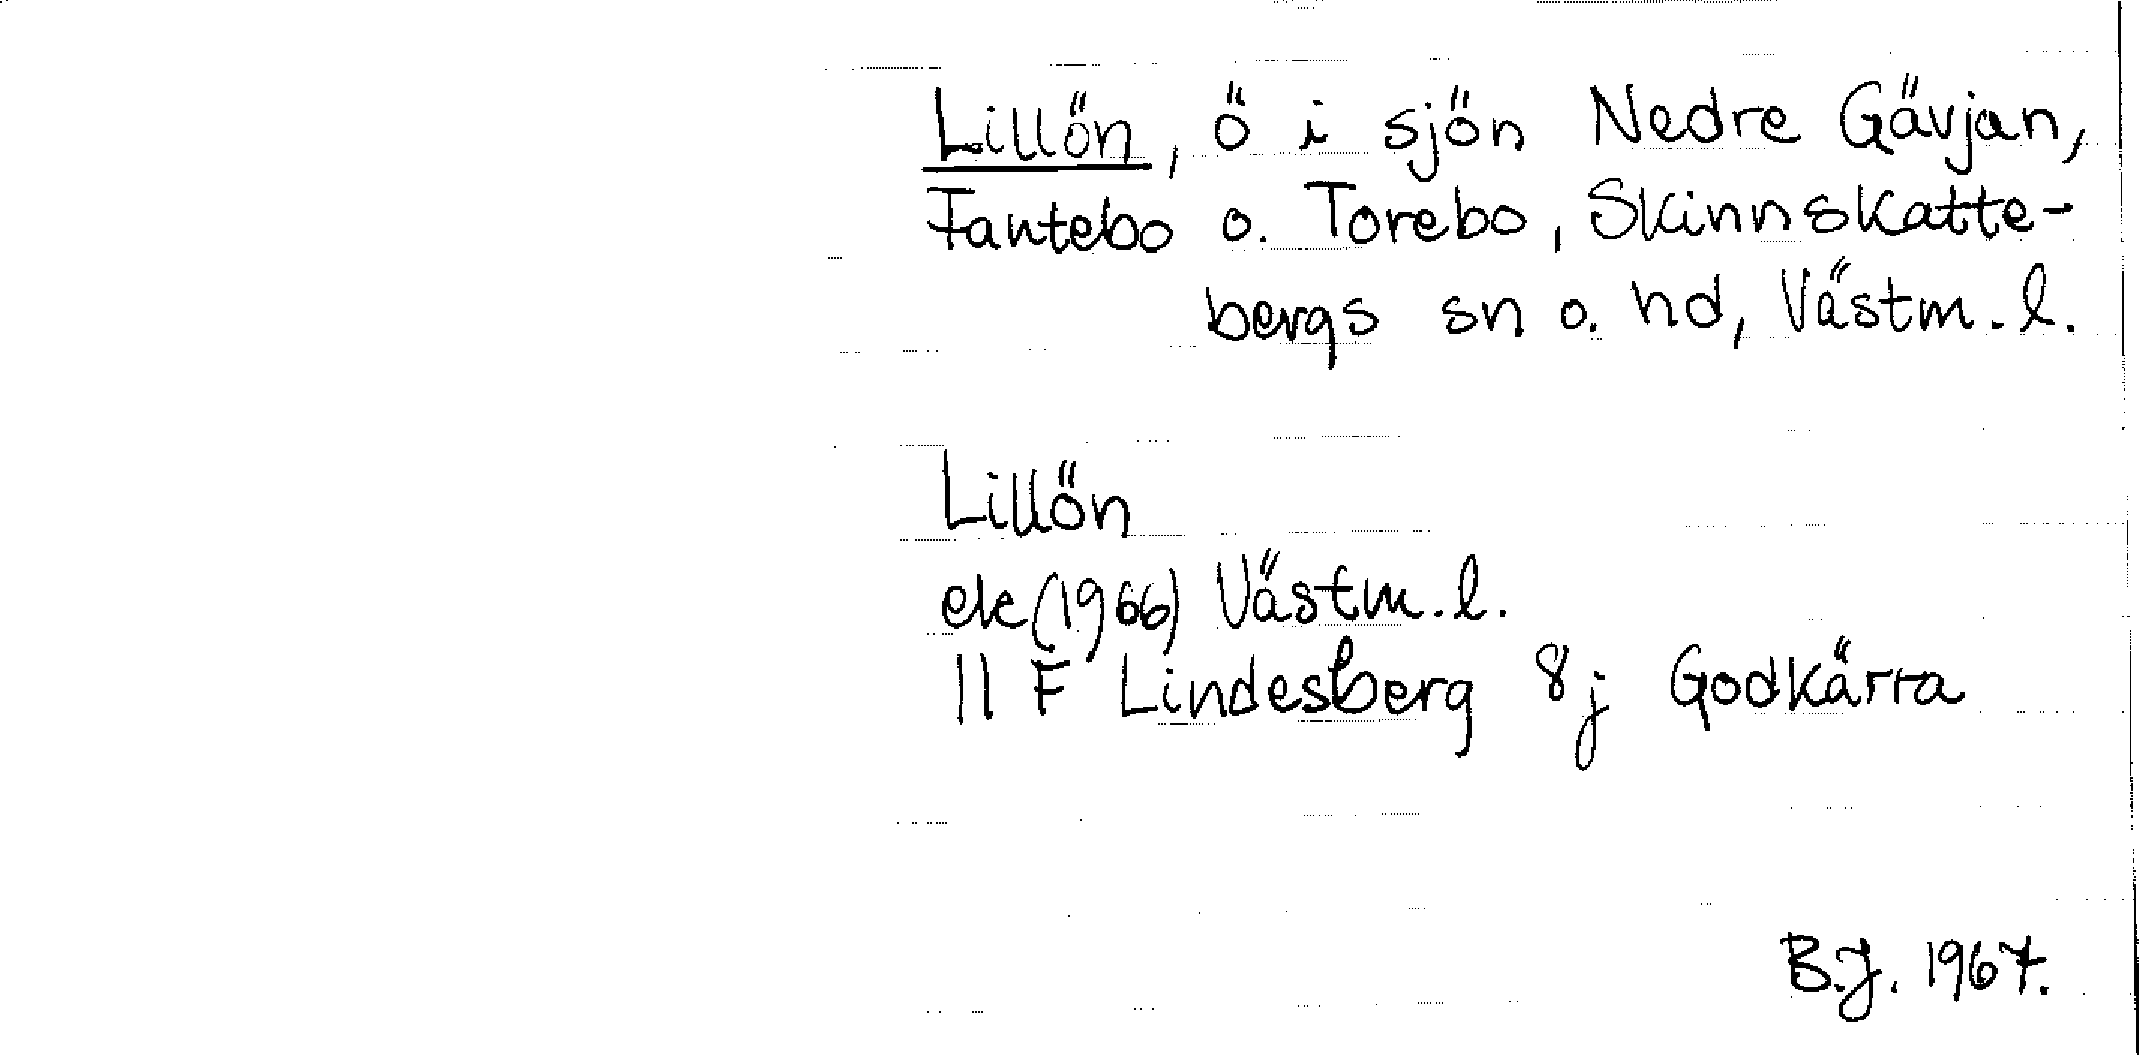 Lillön, ö i sjön Nedre Gävjan,
Fantebo o. Torebo, Skinnskatte-
bergs sn o. hd, Västm. l.
Lillön
ek (1966) Västm. l.
11 F Lindesberg 8 j Godkärra
B.J. 1967.